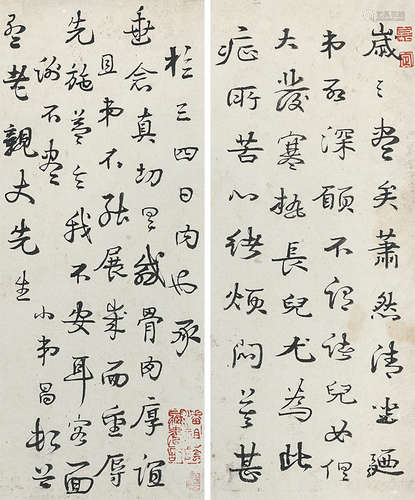 歲之盡矣蕭然清坐廼
弟所深願不謂諸兒女俱
大發寒熱長兒尤為此
症所苦心緒煩悶甚
在三四日内也承
垂念真切是感骨肉厚誼
且弟不能展歲而重辱
先施益令我不安耳容面
謝不盡
老親丈先生
小弟昌頓首